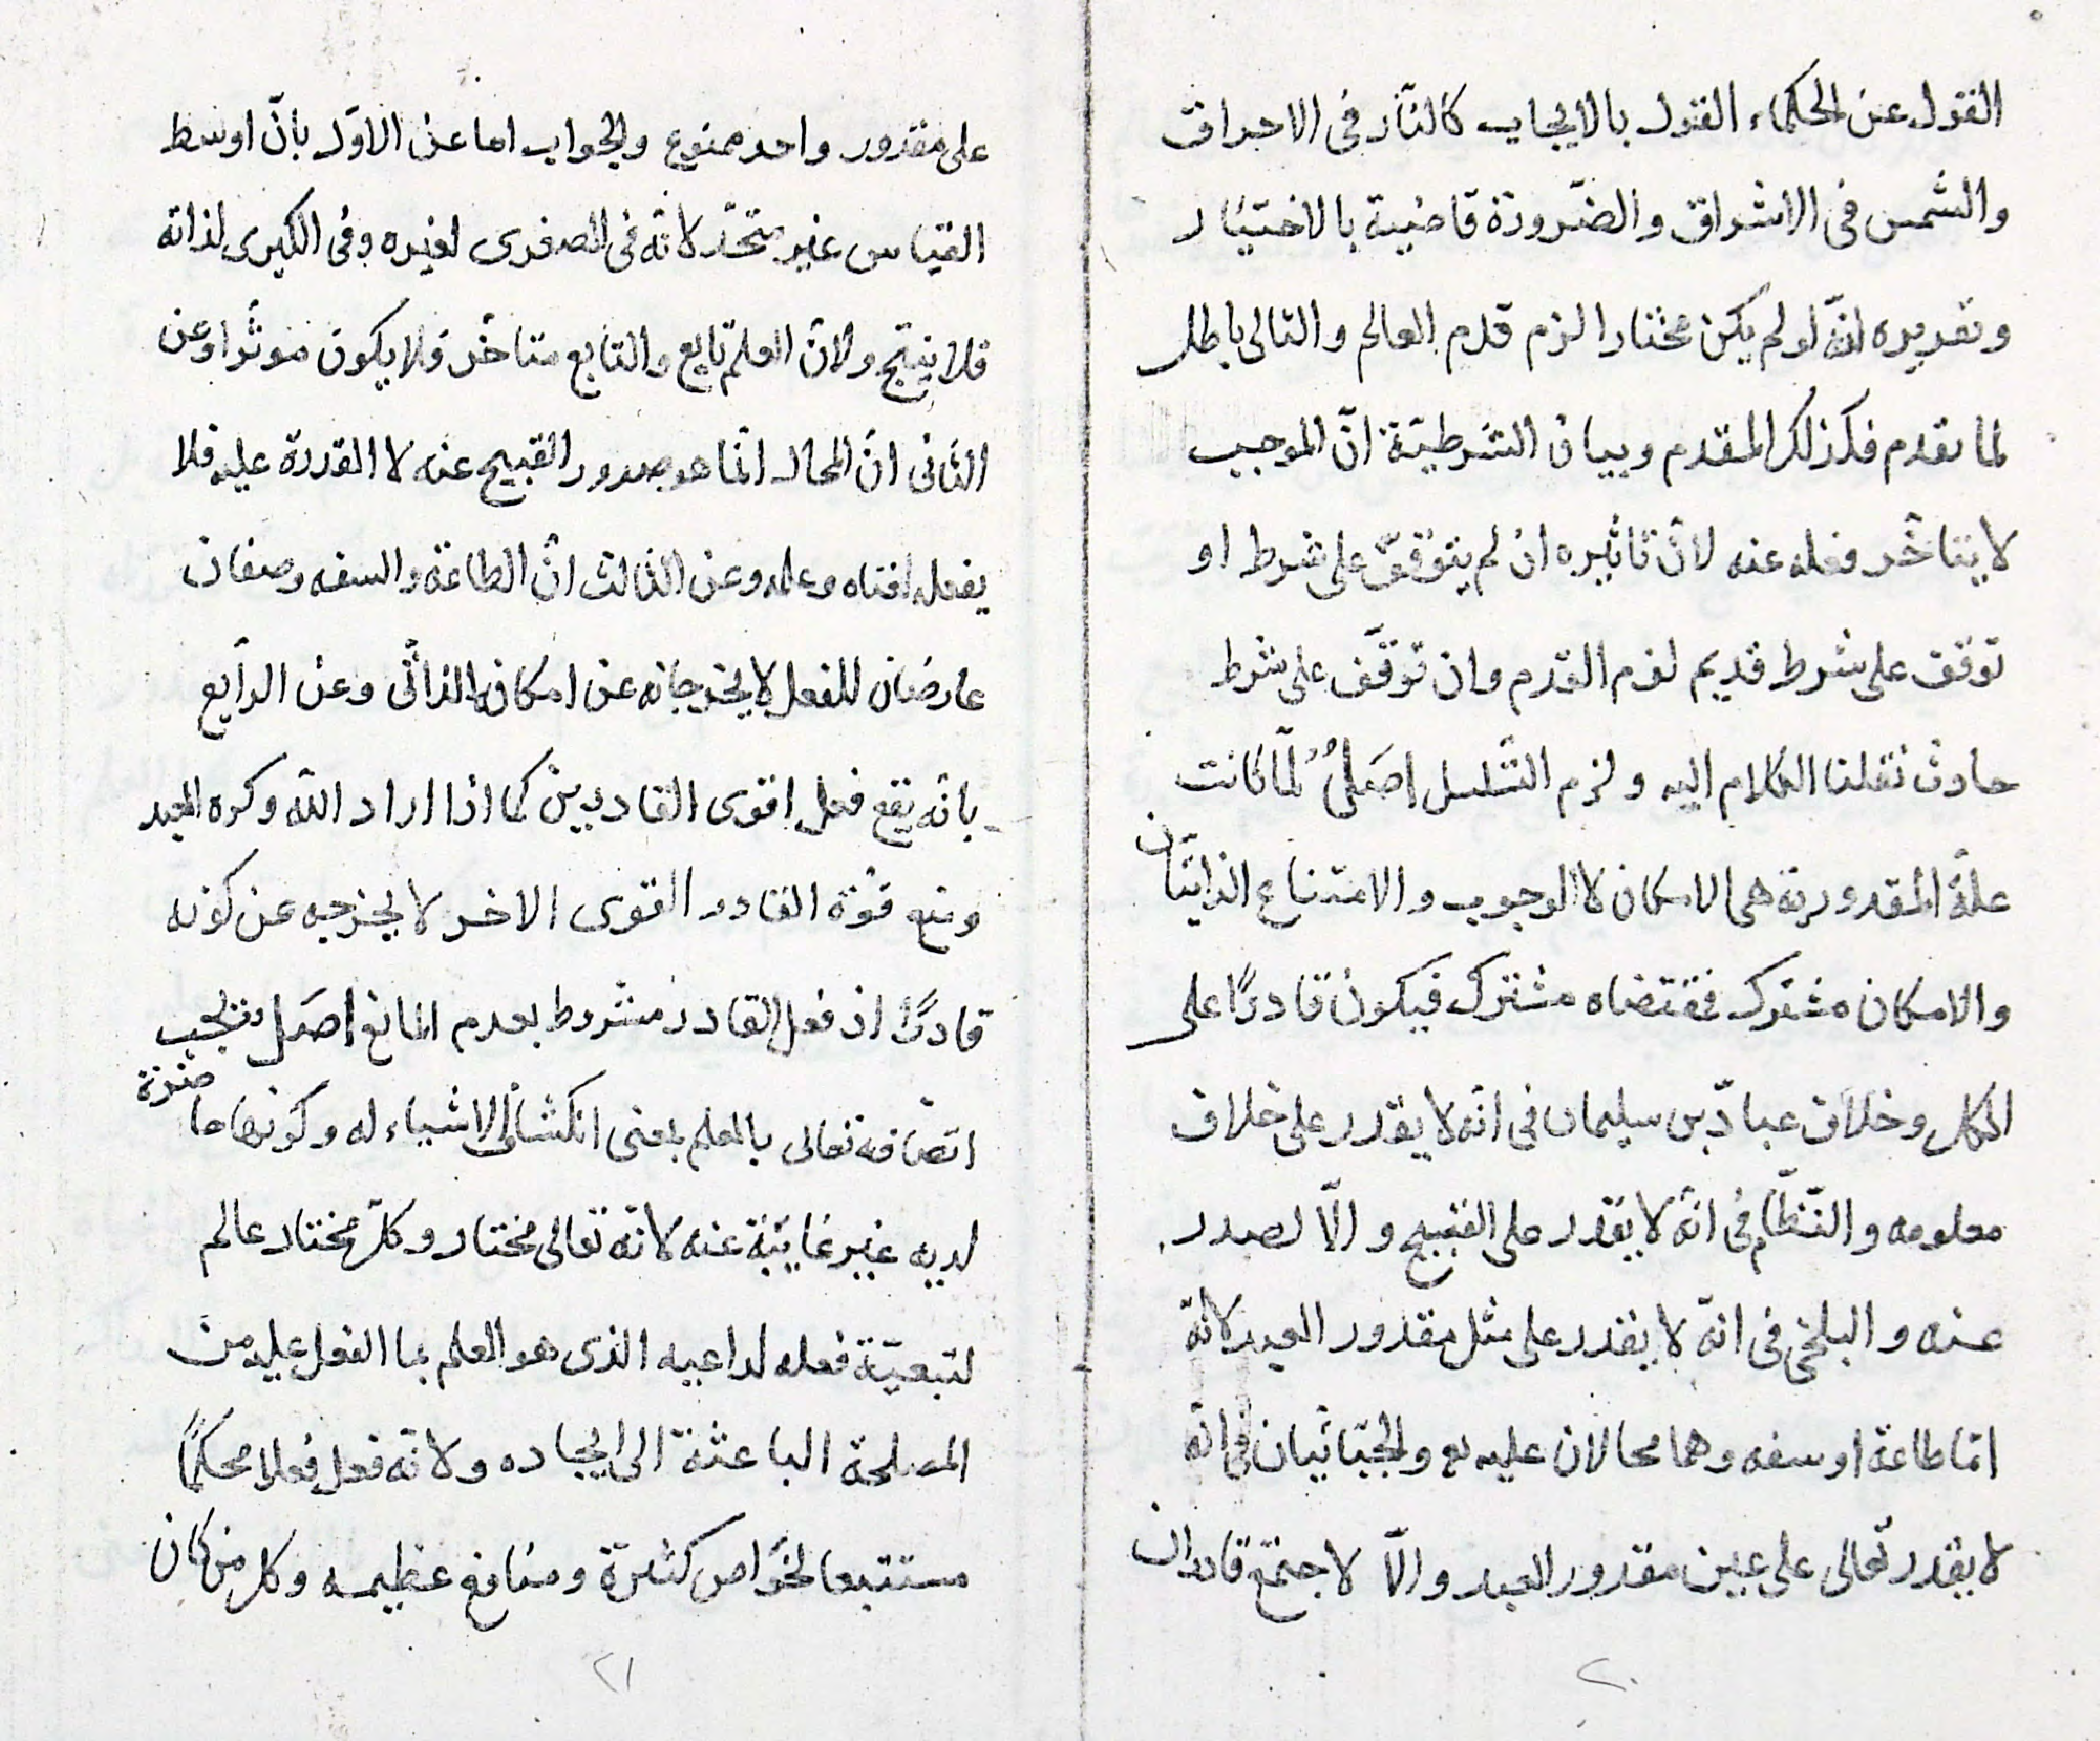 القول عن الحكماء القول بالايجاب كالنّار فى الاحراق
والشمس فى الاشراق والضّرورة قاضية بالاختيار
وتقريره انّه لو لم يكن مختارا لزم قدم العالم والتالى باطل
لما تقدم فكذلك المقدم وبيان الشرطيّة انّ الموجب
لا يتاخّر فعله عنه لانّ تاثيره ان لم يتوقّف على شرط او
توقف على شرط قديم لزم القدم وان توقّف على شرط
حادث نقلنا الكلام اليه ولزم التّسلسل اصلٌ لمّا كانت
علّة المقدوريّة هى الامكان لا الوجوب والامتناع الذاتيّان
والامكان مشترك فمقتضاه مشترك فيكون قادرًا على
الكل وخلاف عبّاد بن سليمان فى انّه لا يقدر على خلاف
معلومه والنّظّام فى انّه لا يقدر على القبيح والّا لصدر
عنه والبلخى فى انّه لا يقدر على مثل مقدور العبد لانّه
امّا طاعة او سفه وهما محالان عليه تع والجبّائيان فى انّه
لا يقدر تعالى على عين مقدور العبد والّا لاجتمع قادران
٢٠
على مقدور واحد ممنوع والجواب اما عن الاوّل بانّ اوسط
القياس غير متّحد لانّه فى الصغرى لغيره وفى الكبرى لذاته
فلا ينتج ولانّ العلم تابع والتابع متاخّر فلا يكون موثّرا وعن
الثانى انّ المحال انّما هو صدور القبيح عنه لا القدرة عليه فلا
يفعله وعن الثالث انّ الطاعة والسفه وصفان
عارضان للفعل لا يخرجانه عن امكان الذاتى وعن الرابع
بانّه يقع فعل اقوى القادرين كما اذا اراد اللّه وكره العبد
ومنع قوّة القادر القوى الاخر لا يخرجه عن كونه
قادرًا اذ فعل القادر مشروط بعدم المانع اصل ويجب
اتّصافه تعالى بالعلم بمعنى انكشاف الاشياء له وكونها حاضرة
لديه غير غايبة عنه لانّه تعالى مختار وكلّ مختار عالم
لتبعيّة فعله لداعيه الذى هو العلم بما الفعل عليه من
المصلحة الباعثة الى ايجاده ولانّه فعل فعلا محكمًا
مستتبعا لخواص كثيرة ومنافع عظيمه وكل من كان
٢١